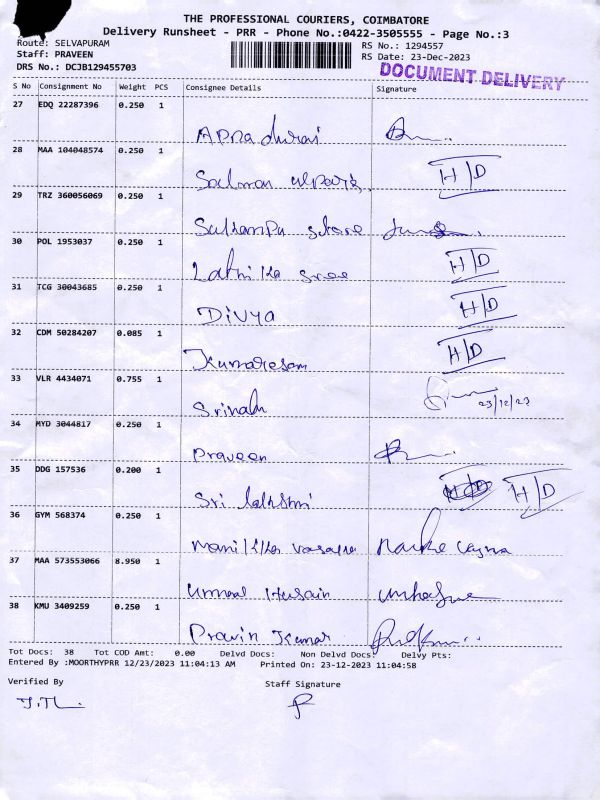 THE PROFESSIONAL COURIERS, COIMBATORE
Delivery Runsheet - PRR - Phone No.:0422-3505555 - Page No.:3
Route: SELVAPURAM
RS No.: 1294557
Staff: PRAVEEN
RS Date: 23-Dec-2023
DRS No.: DCJB129455703
DOCUMENT DELIVERY
S No Consignment No Weight PCS Consignee Details Signature
27 EDQ 22287396 0.250 1
28 MAA 104048574 0.250 1
H/D
Salman
29 TRZ 360056069 0.250 1
30 POL 1953037 0.250 1
H/D
Lathika sree
31 TCG 30043685 0.250 1
H/D
Divya
32 CDM 50284207 0.085 1
H/D
Kumaresan
33 VLR 4434071 0.755 1
23/12/23
34 MYD 3044817 0.250 1
Praveen
35 DDG 157536 0.200 1
H/D H/D
Sri lakshmi
36 GYM 568374 0.250 1
37 MAA 573553066 8.950 1
Husain
38 KMU 3409259 0.250 1
Pravin Kumar
Tot Docs: 38 Tot COD Amt: 0.00 Delvd Docs: Non Delvd Docs: Delvy Pts:
Entered By :MOORTHYPRR 12/23/2023 11:04:13 AM Printed On: 23-12-2023 11:04:58
Verified By
Staff Signature